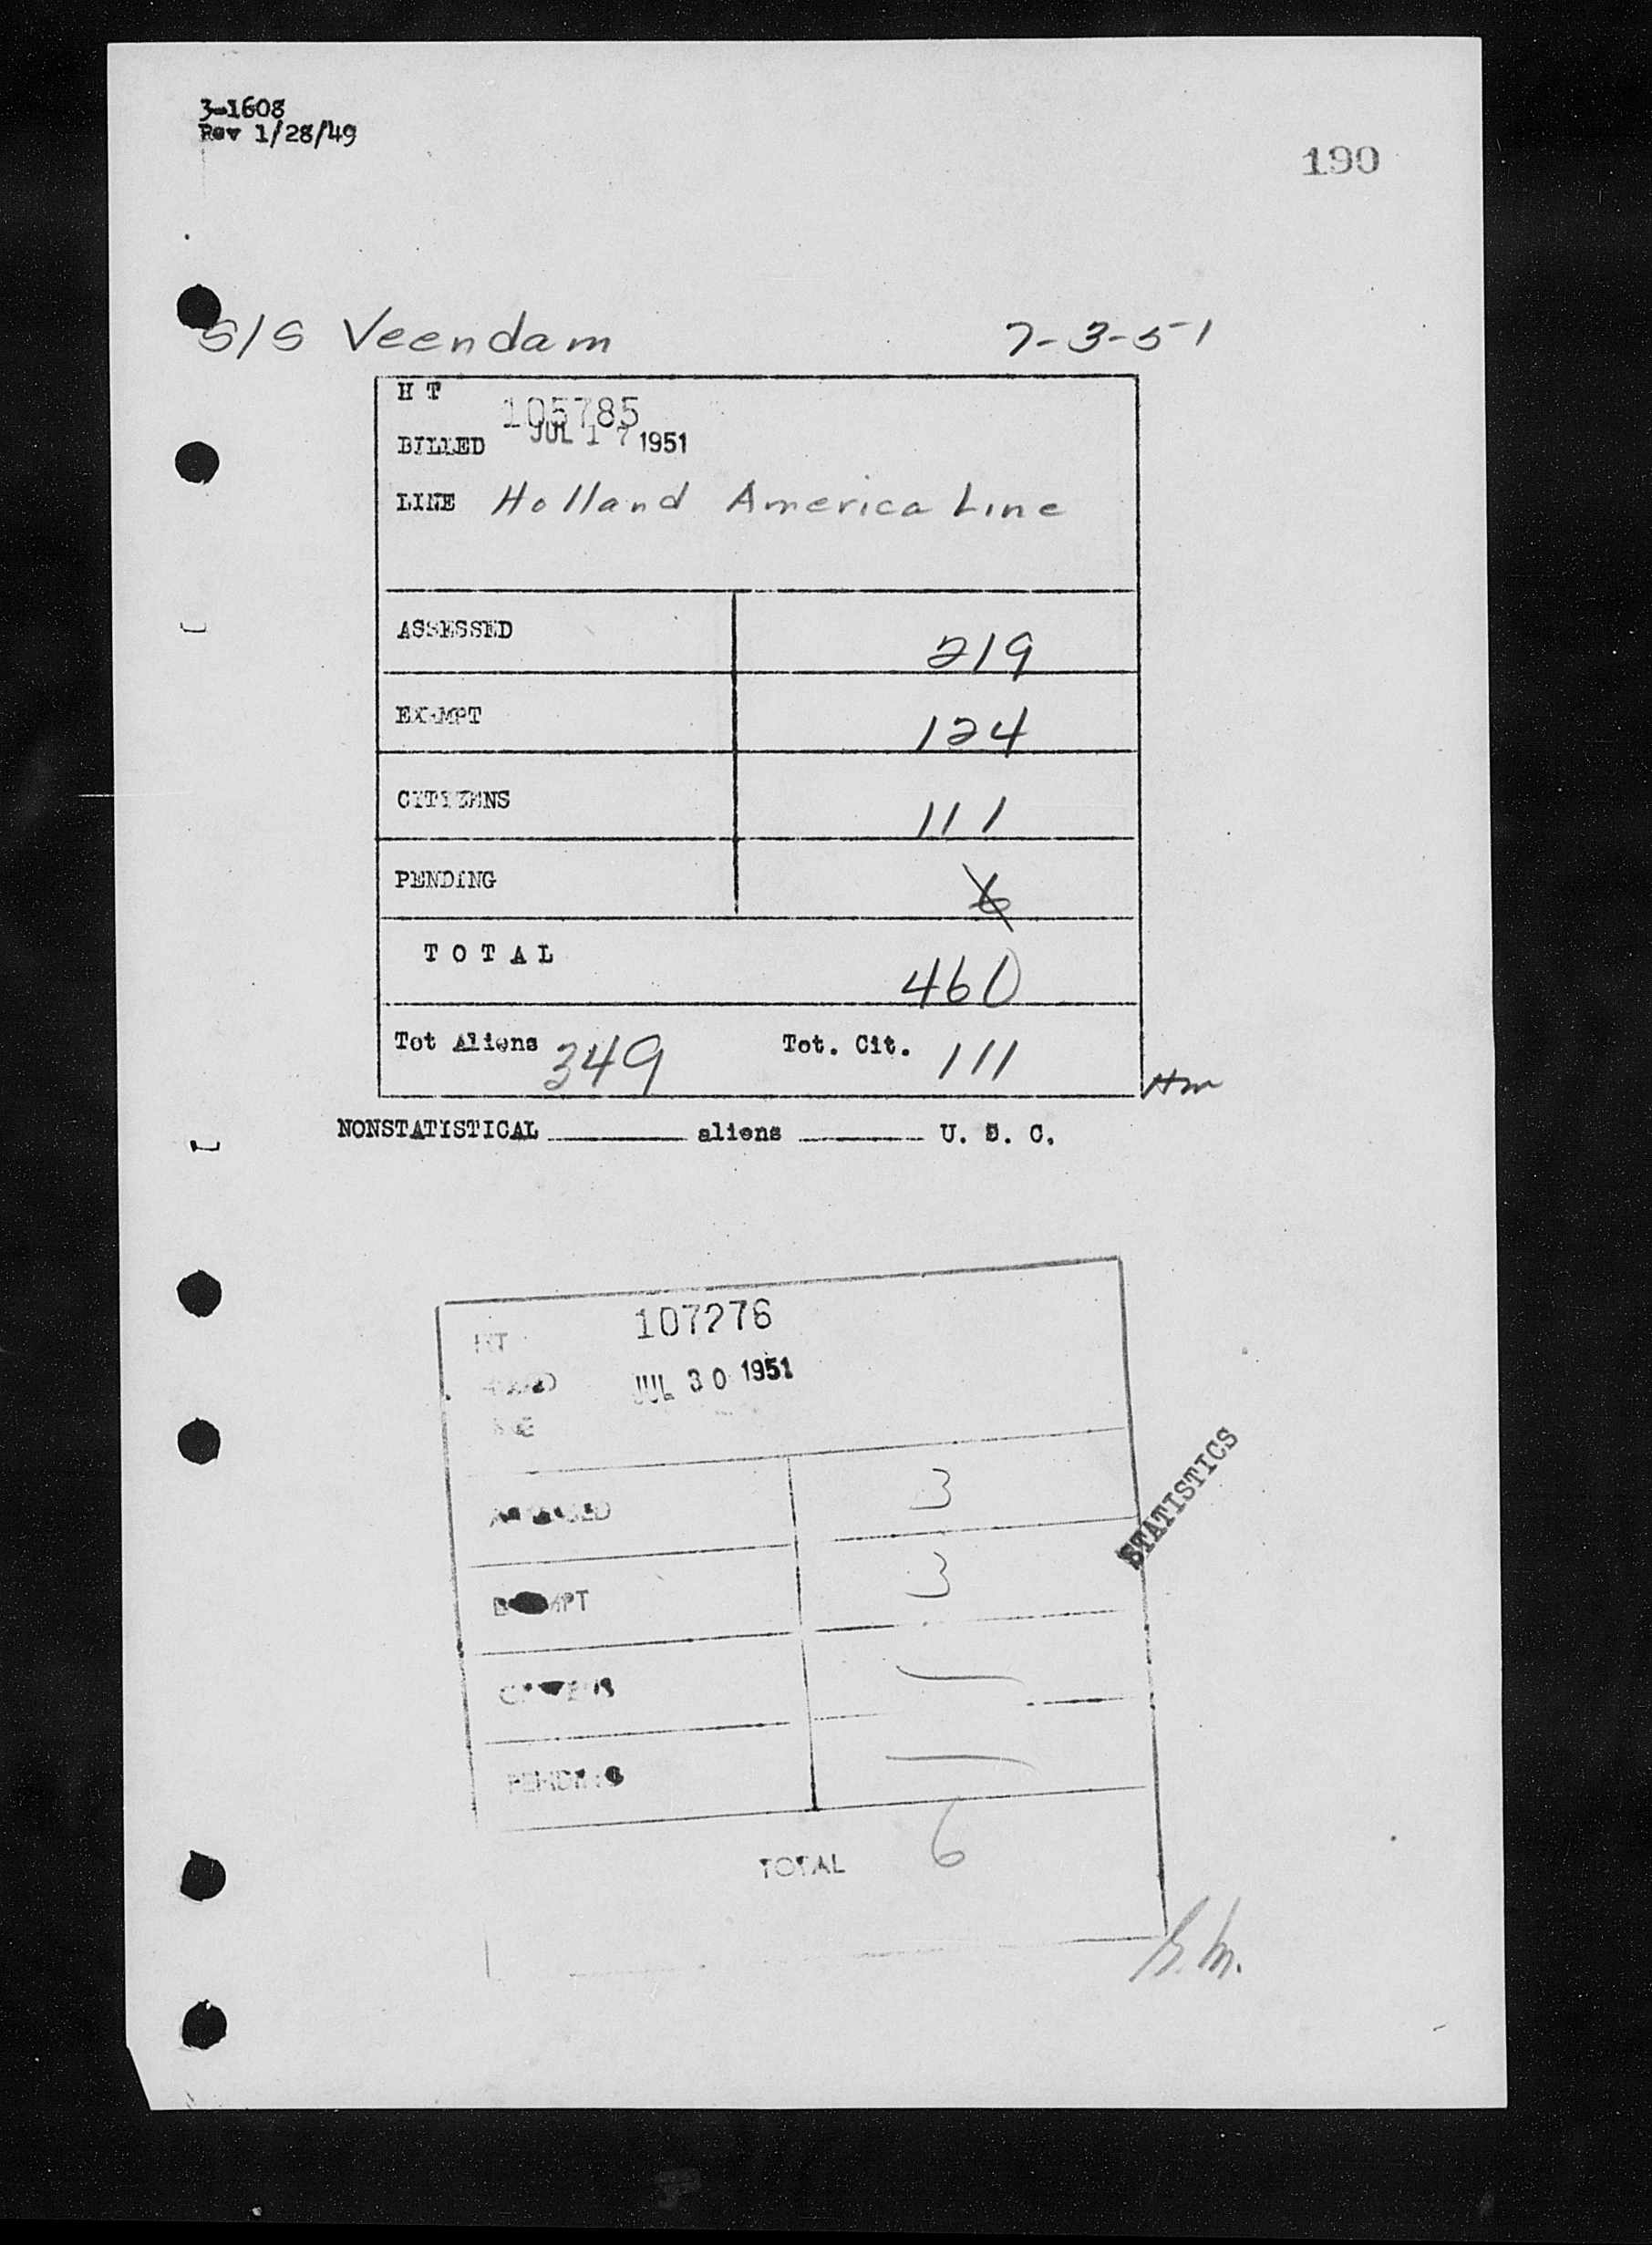 3-1608
Rev 1/28/49
190
S/S Veendam 7-3-51
H T 105785
BILLED JUL 17 1951
LINE Holland America Line
ASSESSED 219
EXEMPT 124
CITIZENS 111
PENDING 6
T O T A L 460
Tot Aliens 349 Tot. Cit. 111
Hm
NONSTATISTICAL aliens U. S. C.
HT 107276
JUL 30 1951
3
STATISTICS
EXEMPT 3
CITIZENS —
PENDING —
TOTAL 6